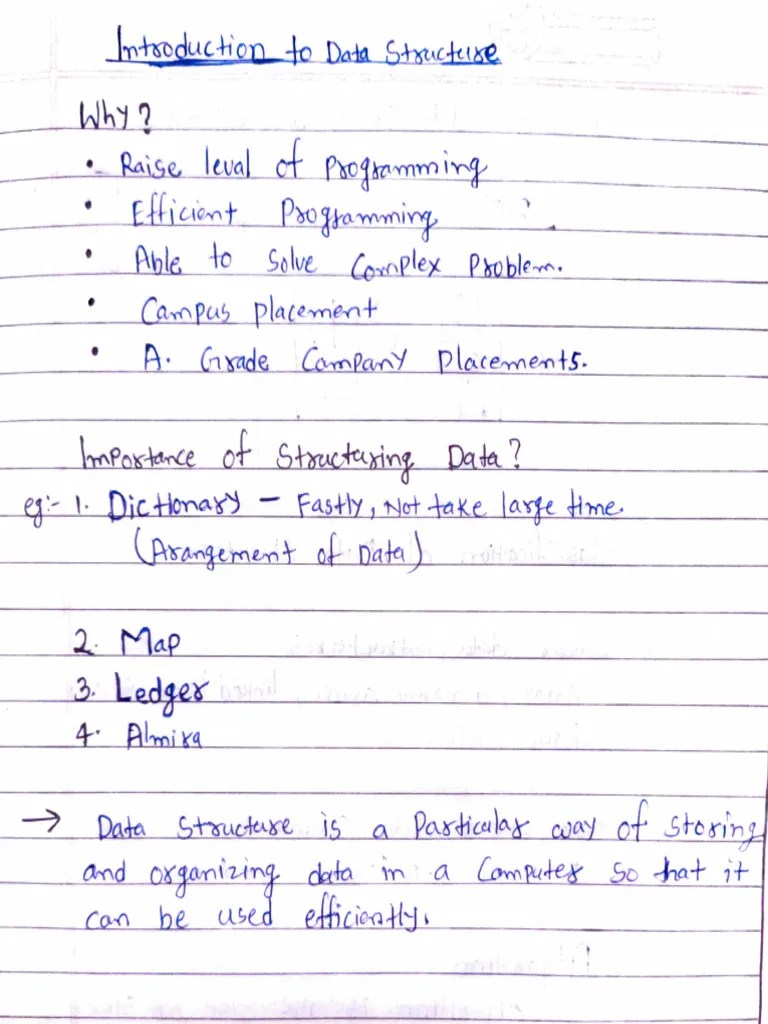 Introduction to Data Structure
Why?
• Raise leval of programming
• Efficient Programming
• Able to Solve Complex Problem.
• Campus placement
• A. Grade Company placements.
Importance of Structuring Data?
eg:- 1. Dictionary – Fastly, Not take large time.
(Arangement of Data)
2. Map
3. Ledger
4. Almira
→ Data Structure is a Particular way of storing
and organizing data in a Computer so that it
can be used efficiently.